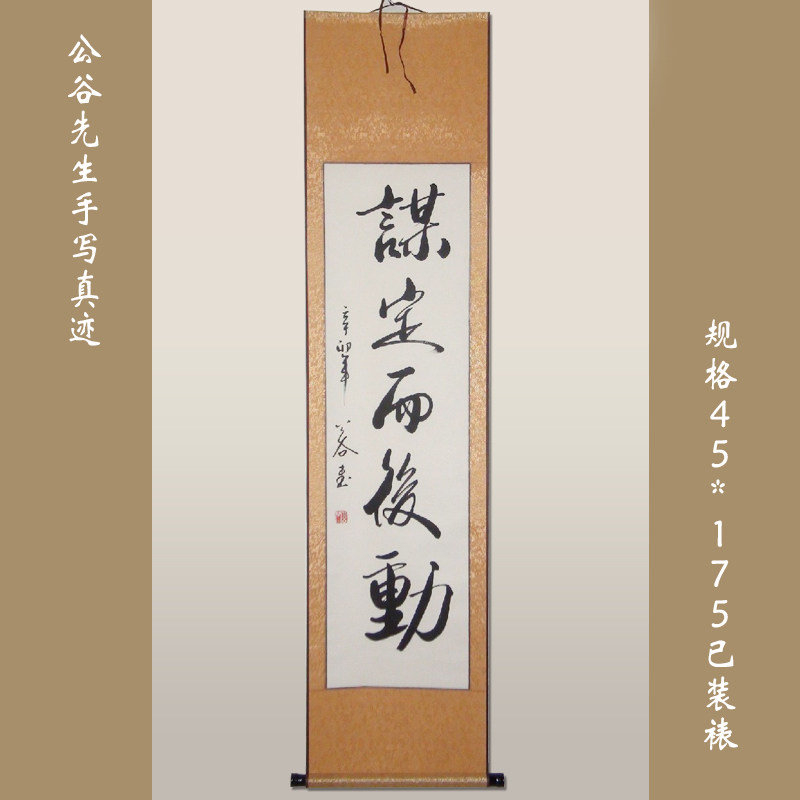 公谷先生手写真迹
謀定而後動
辛卯年 公谷書
规格45*175已装裱